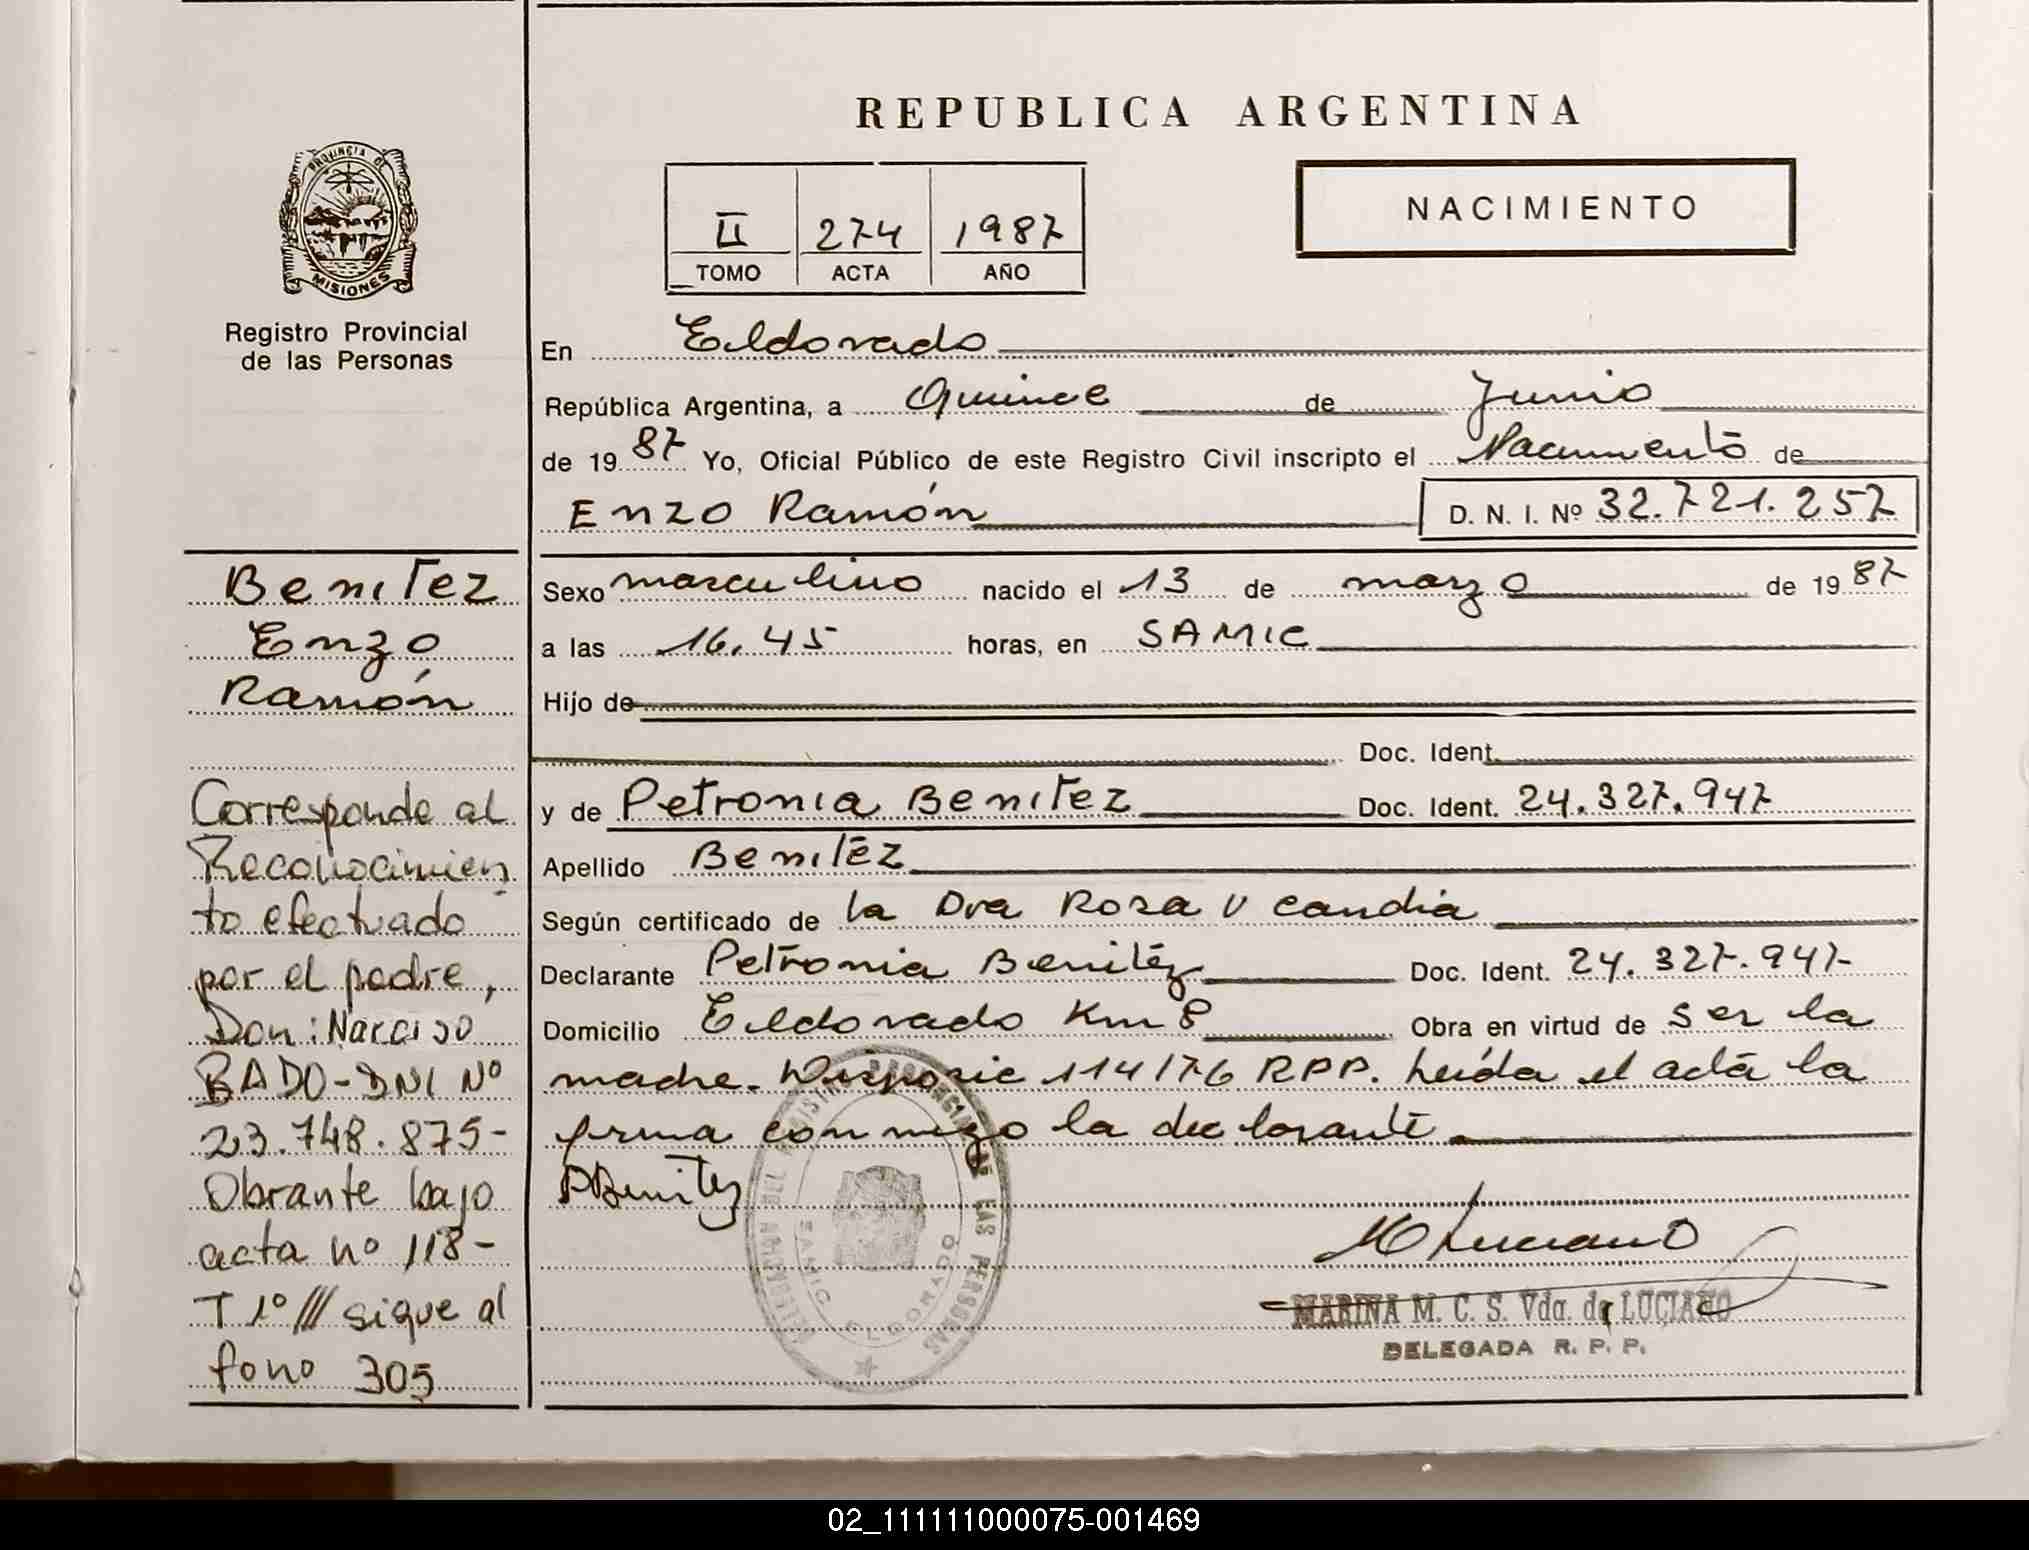 REPUBLICA ARGENTINA
PROVINCIA DE
MISIONES
Registro Provincial
de las Personas
II 274 1987
TOMO ACTA AÑO
NACIMIENTO
En Eldorado
República Argentina, a Quince de Junio
de 1987 Yo, Oficial Público de este Registro Civil inscripto el Nacimiento de
Enzo Ramón D. N. I. Nº 32.721.257
Benitez
Enzo
Ramón
Corresponde al
Reconocimien
to efectuado
por el padre,
Don: Narciso
BADO-DNI Nº
23.748.875-
Obrante bajo
acta nº 118-
T 1º /// sigue al
fono 305
Sexo masculino nacido el 13 de marzo de 1987
a las 16.45 horas, en SAMIC
Hijo de
Doc. Ident.
y de Petronia Benitez Doc. Ident. 24.327.947
Apellido Benitez
Según certificado de la Dra Rosa V Candia
Declarante Petronia Benitez Doc. Ident. 24.327.947
Domicilio Eldorado Km 8 Obra en virtud de ser la
madre. Disposic 114/76 RPP. Leída el acta la
firma conmigo la declarante
PBenitez
SAMIC ELDORADO
M Luciano
MARINA M. C. S. Vda. de LUCIANO
DELEGADA R. P. P.
02_111111000075-001469